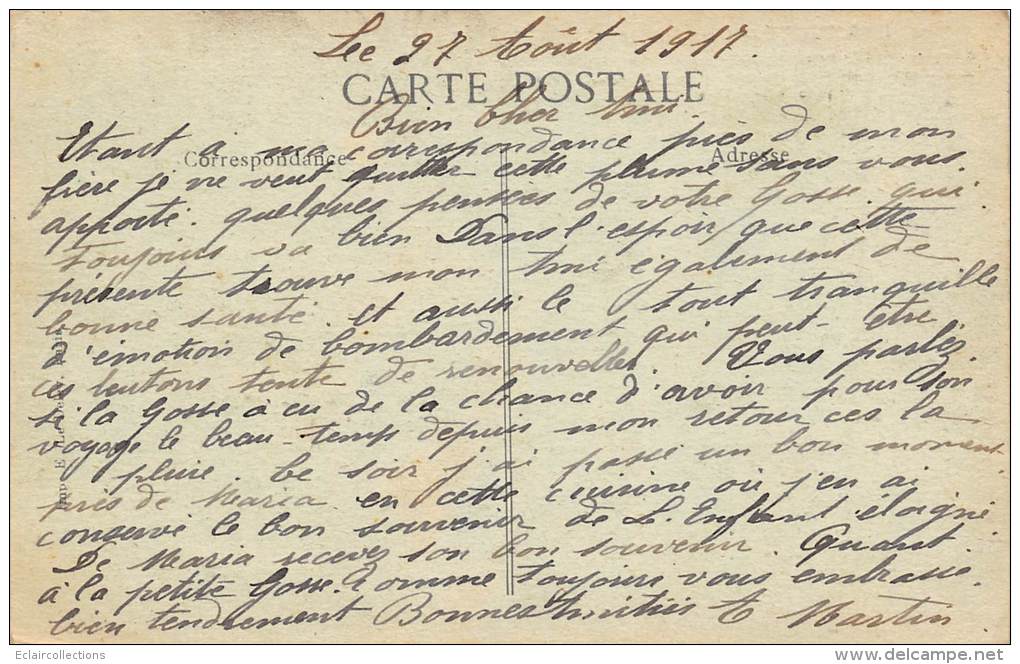 Le 27 Aôut 1917.
CARTE POSTALE
Bien cher Ami
Correspondance
Adresse
Etant a ma correspondance près de mon
frère je ne veut quitter cette plume sans vous
apporté quelques pensées de votre Gosse qui
toujours va bien Dans l'espoir que cette
présente trouve mon Ami également de
bonne santé. et aussi le tout tranquille
d'émotion de bombardement qui peut-être
ces teutons tente de renouveller. Vous parlez
si la Gosse à eu de la chance d'avoir pour son
voyage le beau-temps depuis mon retour ces la
pluie. Ce soir j'ai passé un bon moment
près de Maria en cette cuisine où j'en ai
conservé le bon souvenir de L'Enfant éloigné
De Maria recevez son bon souvenir. Quant
à la petite Gosse. Comme toujours vous embrasse
bien tendrement Bonnes Amitiés C Martin
Imp. E. Le
Eclaircollections
www.delcampe.net